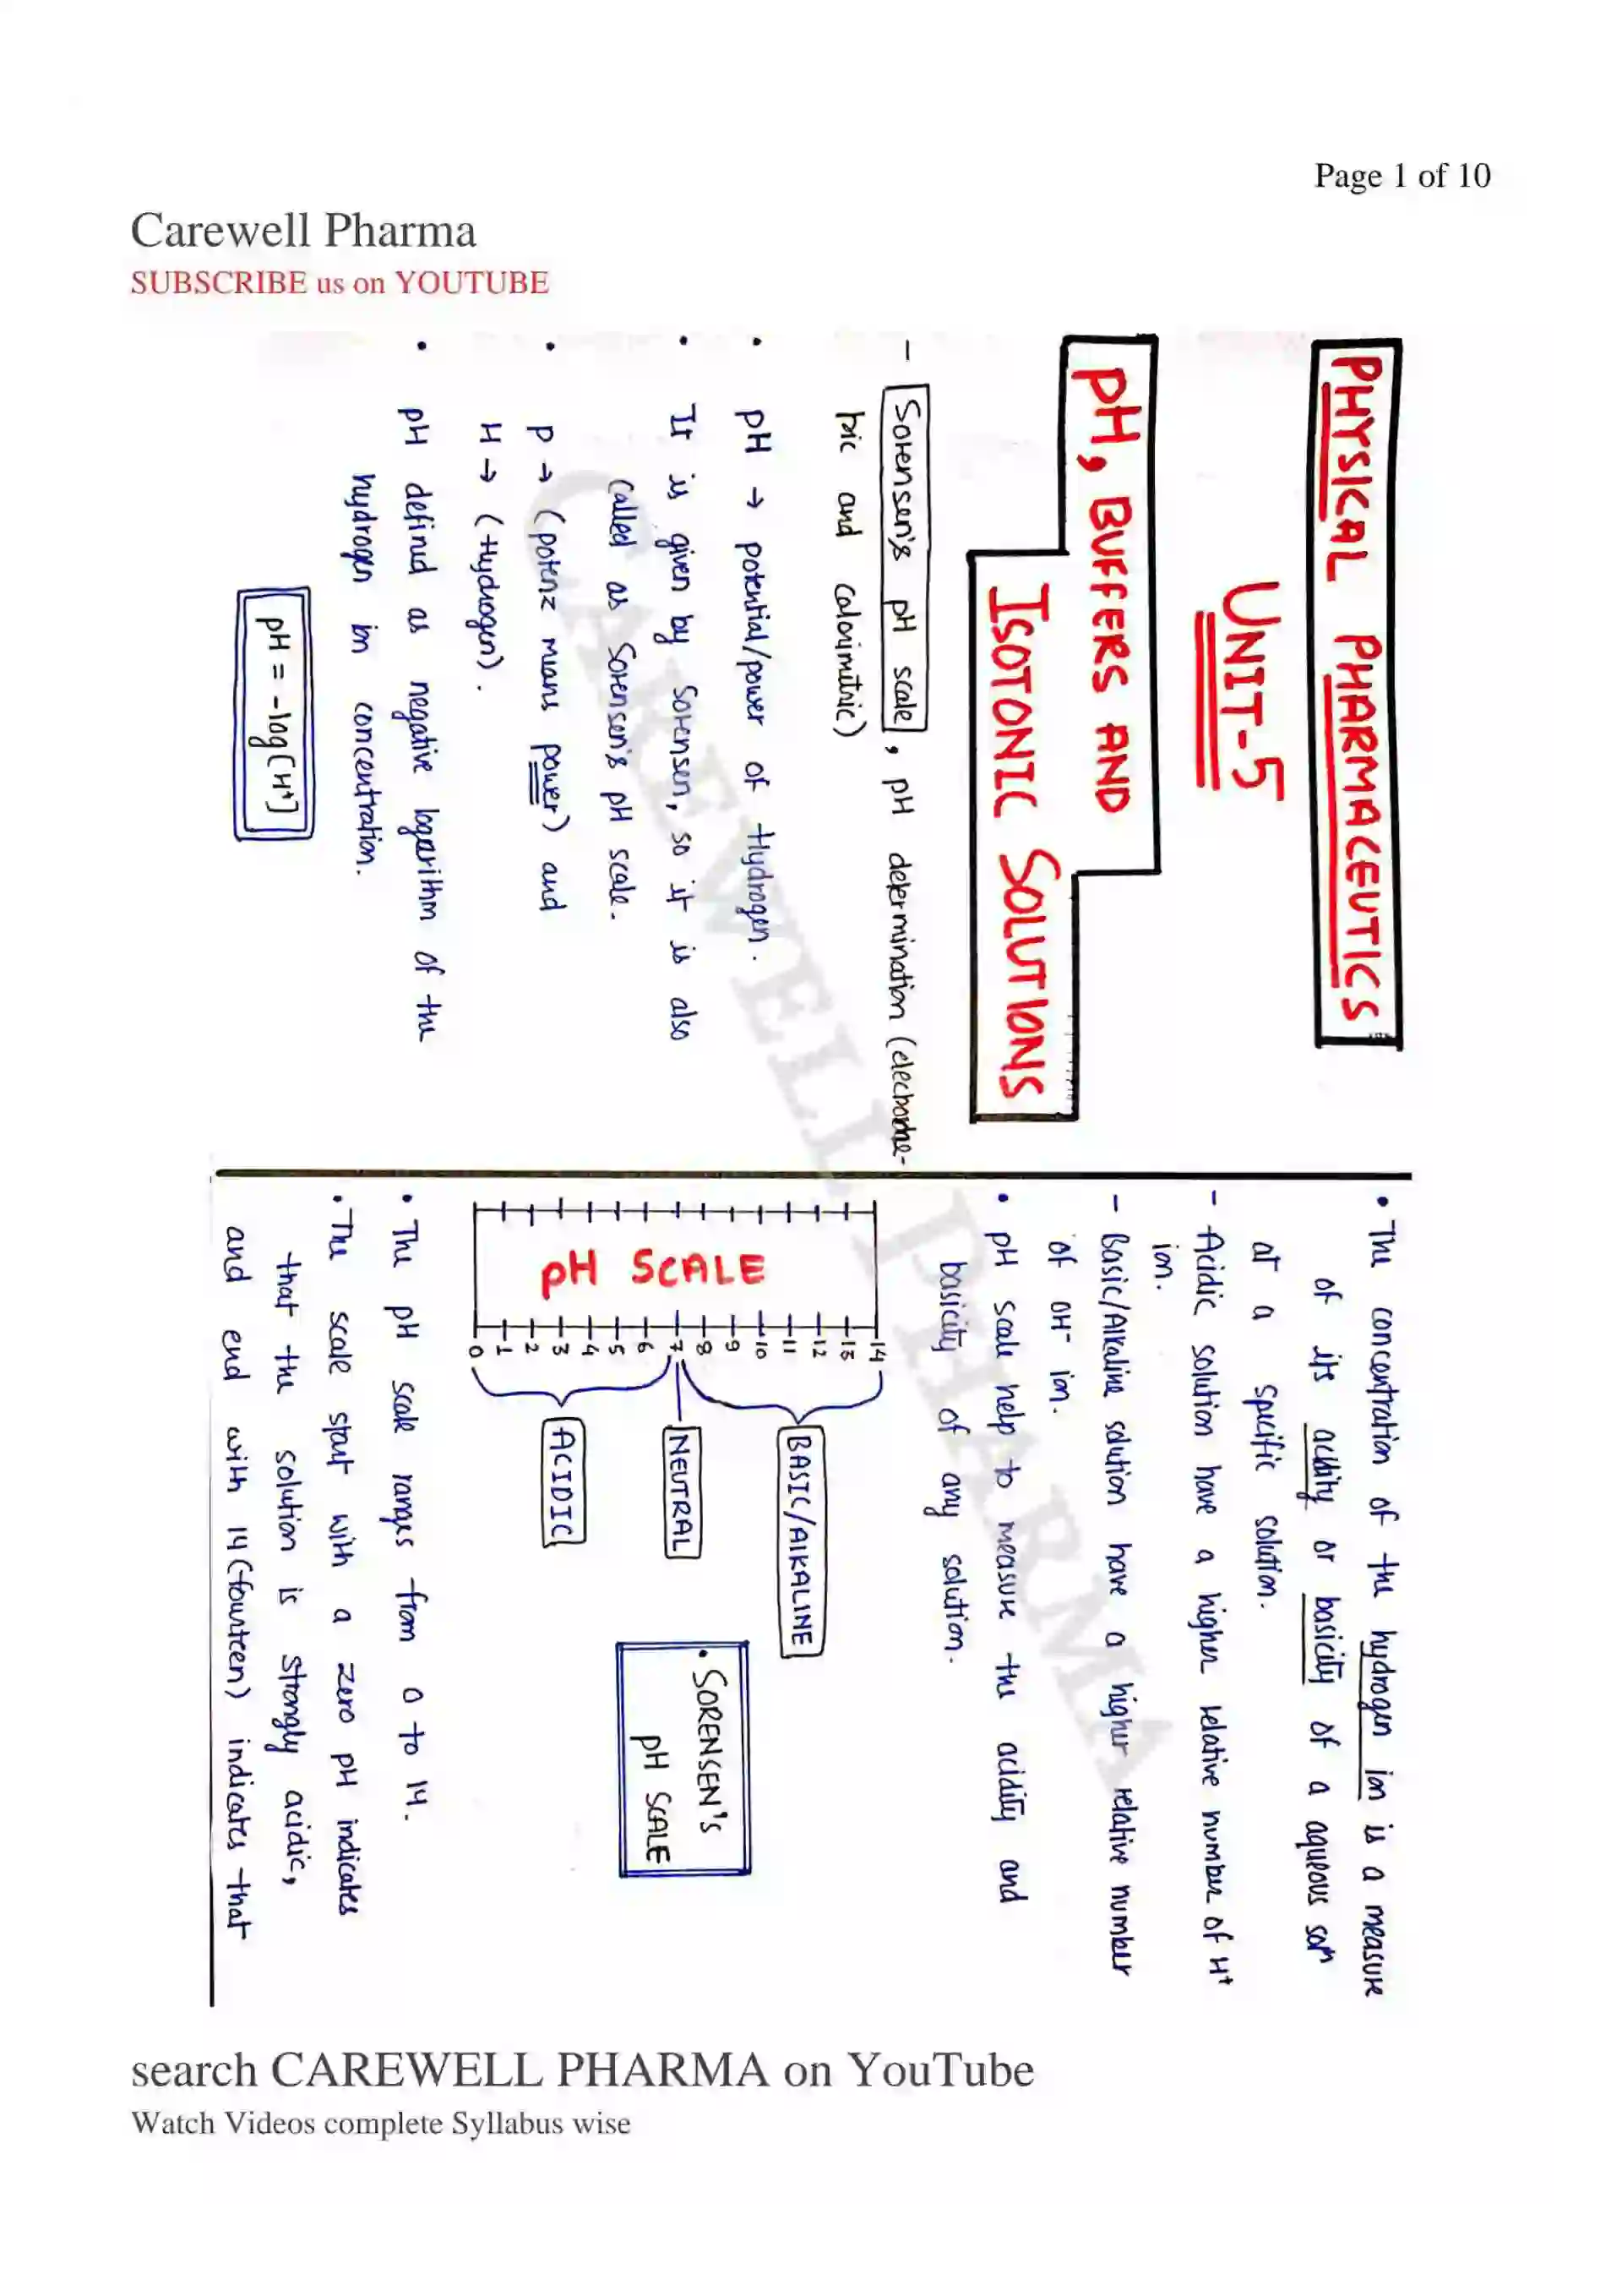 Page 1 of 10
Carewell Pharma
SUBSCRIBE us on YOUTUBE
PHYSICAL PHARMACEUTICS
UNIT-5
pH, BUFFERS AND
ISOTONIC SOLUTIONS
- Sorensen's pH scale, pH determination (electrome-
tric and calorimetric)
• pH → potential/power of Hydrogen.
• It is given by Sorensen, so it is also
called as Sorensen's pH scale.
• P → (potenz means power) and
H → (Hydrogen).
• pH defined as negative logarithm of the
hydrogen ion concentration.
pH = -log[H⁺]
• The concentration of the hydrogen ion is a measure
of its acidity or basicity of a aqueous solⁿ
at a specific solution.
- Acidic solution have a higher relative number of H⁺
ion.
- Basic/Alkaline solution have a higher relative number
of OH⁻ ion.
• pH scale help to measure the acidity and
basicity of any solution.
pH SCALE
0 1 2 3 4 5 6 7 8 9 10 11 12 13 14
ACIDIC
NEUTRAL
BASIC/ALKALINE
• SORENSEN'S
pH SCALE
• The pH scale ranges from 0 to 14.
• The scale start with a zero pH indicates
that the solution is strongly acidic,
and end with 14 (fourteen) indicates that
CAREWELL PHARMA
search CAREWELL PHARMA on YouTube
Watch Videos complete Syllabus wise